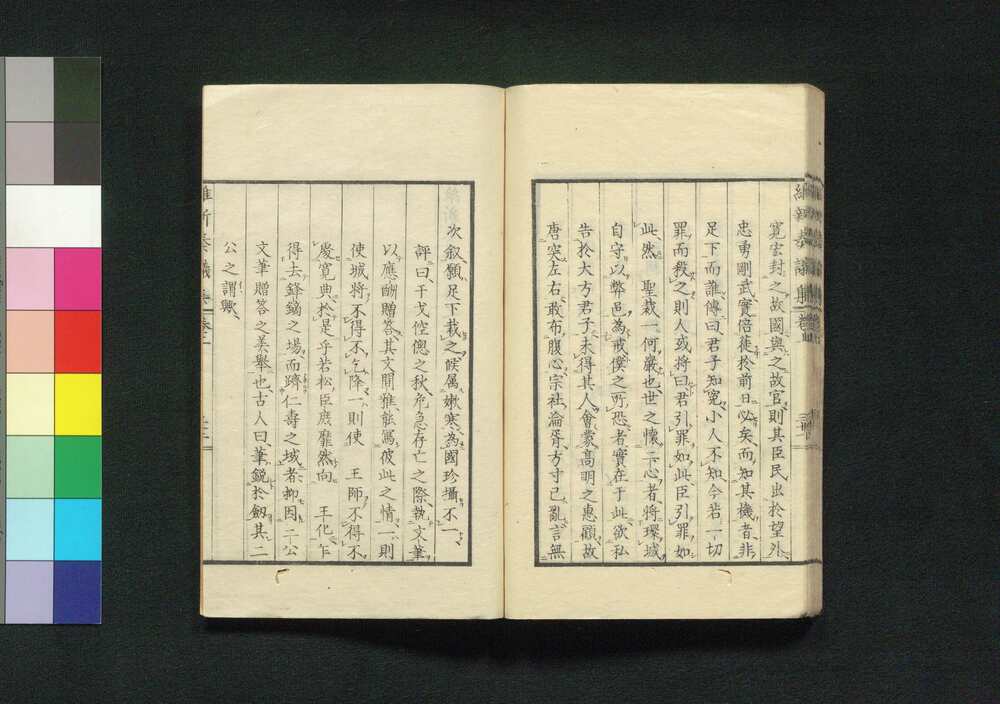 寛宏封之故國與之故官則其臣民出於望外
忠勇剛武實倍蓰於前日必矣而知其機者非
足下而誰傳曰君子知寛小人不知今若一切
罪而殺之則人或將曰君引罪如此臣引罪如
此然 聖裁一何嚴也世之懐二心者將環城
自守以弊邑為戒僕之所恐者實在于此欲私
告於大方君子未得其人會蒙高明之惠顧故
唐突左右敢布腹心宗社淪胥方寸已亂言無
次叙願足下裁之候属嫩寒為國珍攝不一
評曰干戈倥偬之秋危急存亡之際執文筆
以應酬贈答其文閒雅能寫彼此之情一則
使城將不得不乞降一則使 王師不得不
發寛典於是乎若松臣庶靡然向 王化乍
得去鋒鏑之場而躋仁壽之域者抑因二公
文筆贈答之美舉也古人曰筆鋭於劔其二
公之謂歟